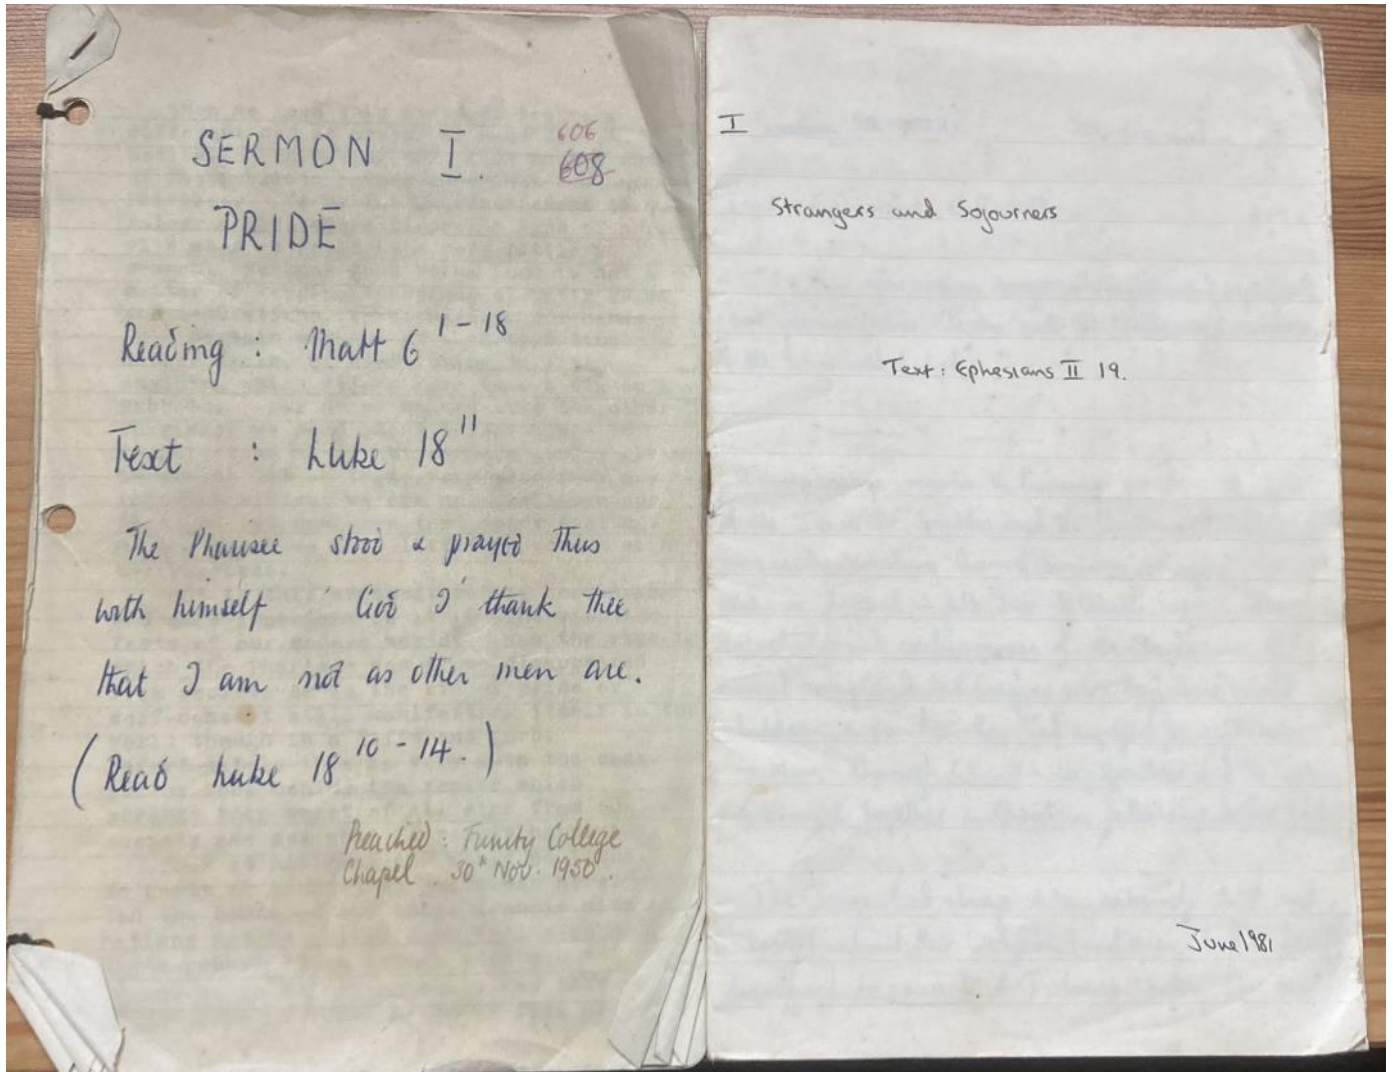 SERMON I.
606
608
PRIDE
Reading : Matt 6 1-18
Text : Luke 18 11
The Pharisee stood & prayed thus
with himself God I thank thee
that I am not as other men are.
(Read Luke 18 10-14.)
Preached : Trinity College
Chapel. 30th Nov. 1950.
I
Strangers and Sojourners
Text: Ephesians II 19.
June 1981